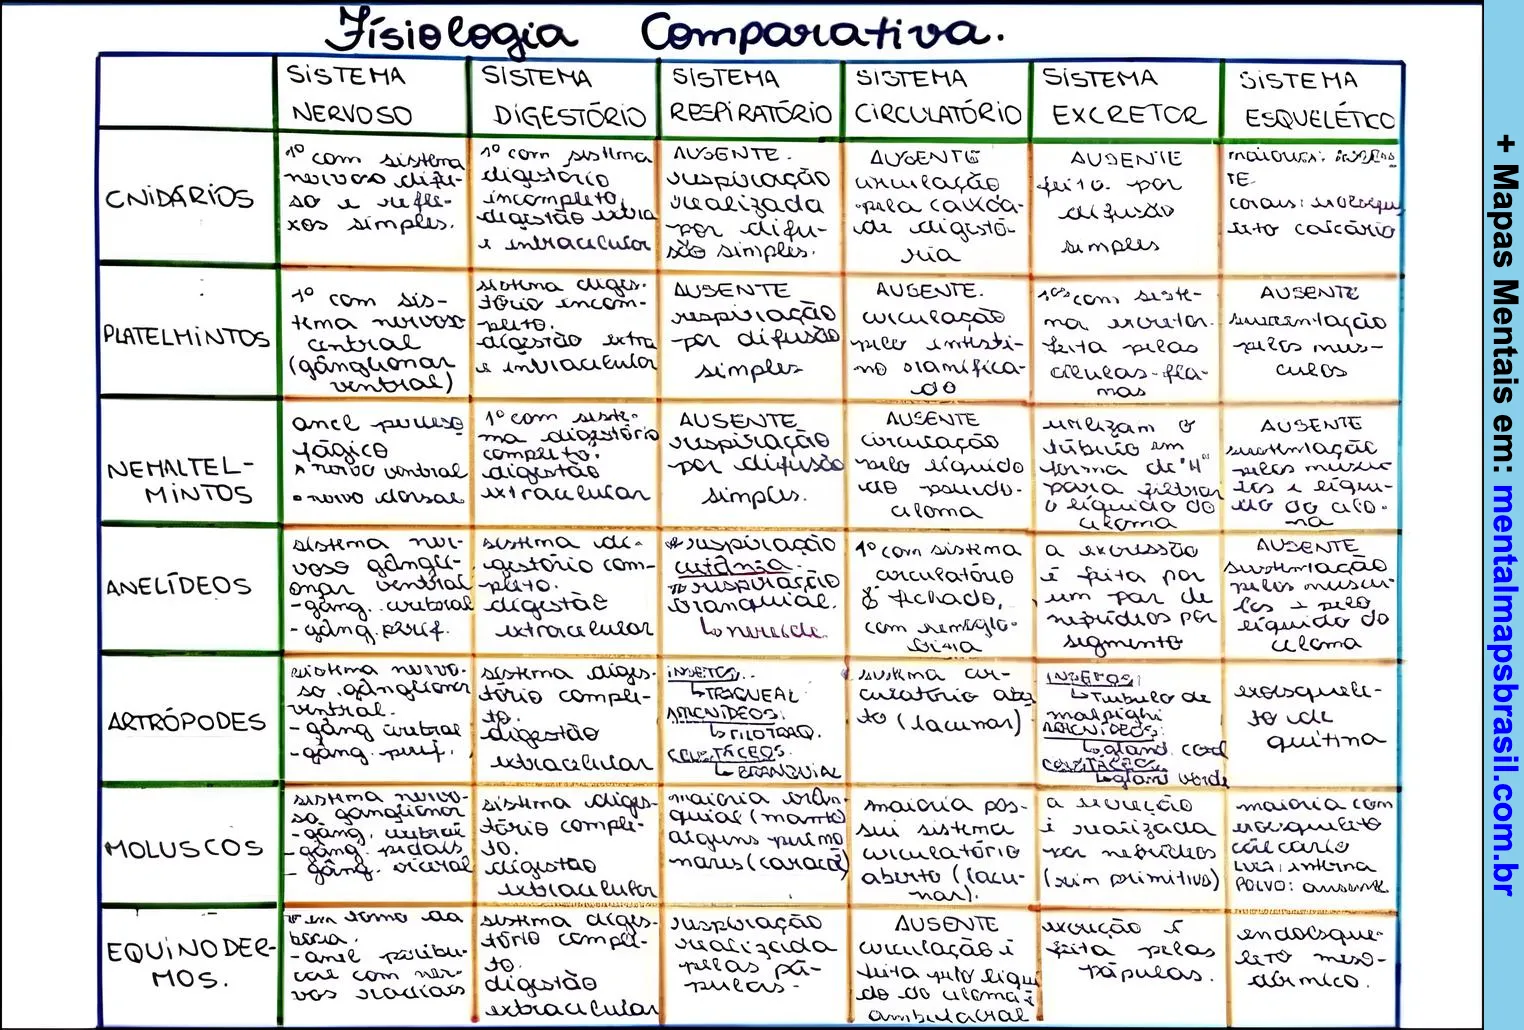 Fisiologia Comparativa.
SISTEMA
NERVOSO
SISTEMA
DIGESTÓRIO
SISTEMA
RESPIRATÓRIO
SISTEMA
CIRCULATÓRIO
SISTEMA
EXCRETOR
SISTEMA
ESQUELÉTICO
CNIDÁRIOS
1º com sistema
nervoso difu-
so e refle-
xos simples.
1º com sistema
digestório
incompleto,
digestão extra
e intracelular
AUSENTE.
respiração
realizada
por difu-
são simples.
AUSENTE
circulação
pela cavida-
de digestó-
ria
AUSENTE
feito por
difusão
simples
maioria:
TE.
corais:
calcário
PLATELMINTOS
1º com sis-
tema nervoso
central
(ganglionar
ventral)
sistema diges-
tório incom-
pleto.
digestão extra
e intracelular
AUSENTE
respiração
por difusão
simples
AUSENTE.
circulação
pelo intesti-
no ramifica-
do
1ºs com siste-
ma excretor
feita pelas
células-fla-
mas
AUSENTE
sustentação
pelos mús-
culos
NEMALTEL-
MINTOS
anel perieso
fágico
nervo ventral
nervo dorsal
1º com siste-
ma digestório
completo.
digestão
extracelular
AUSENTE
respiração
por difusão
simples.
AUSENTE
circulação
pelo líquido
do pseudo-
celoma
utilizam o
túbulo em
forma de "H"
para filtrar
o líquido do
celoma
AUSENTE
sustentação
pelos múscu
los e líqui-
do do celo-
ma
ANELÍDEOS
sistema ner-
voso gangli-
onar ventral
-gâng. cerebral
-gâng. perif.
sistema di-
gestório com-
pleto.
digestão
extracelular
respiração
cutânea.
respiração
branquial.
↳nereide
1º com sistema
circulatório
fechado,
com hemoglo-
bina
a excreção
é feita por
um par de
nefrídeos por
segmento
AUSENTE
sustentação
pelos múscu-
los e pelo
líquido do
celoma
ARTRÓPODES
sistema nervo-
so ganglionar
ventral.
-gâng cerebral
-gâng. perif.
sistema diges-
tório comple-
to.
digestão
extracelular
INSETOS:
↳TRAQUEAL
ARACNÍDEOS:
↳FILOTRAQ.
CRUSTÁCEOS:
↳BRANQUIAL
sistema cir-
culatório aber
to (lacunar)
INSETOS:
↳Túbulo de
malpighi
ARACNÍDEOS:
↳gland. coxal
CRUSTÁCEOS:
↳gland verde
exoesquele-
to de
quitina
MOLUSCOS
sistema nervo-
so ganglionar
-gâng. cerebral
-gâng. pedais
-gâng. visceral
sistema diges-
tório comple-
to.
digestão
extracelular
maioria bran-
quial (manto)
alguns pulmo
nares (caracol)
maioria pos-
sui sistema
circulatório
aberto (lacu-
nar).
a excreção
é realizada
por nefrídeos
(rim primitivo)
maioria com
exoesqueleto
calcário
lula: interna
POLVO: ausente
EQUINODER-
MOS.
em torno da
boca.
-anel peribu-
cal com ner-
vos radiais
sistema diges-
tório comple-
to.
digestão
extracelular
respiração
realizada
pelas pá-
pulas.
AUSENTE
circulação é
feita pelo líqui
do do celoma e
ambulacral
excreção é
feita pelas
pápulas.
endoesque-
leto meso-
dérmico.
+ Mapas Mentais em: mentalmapsbrasil.com.br